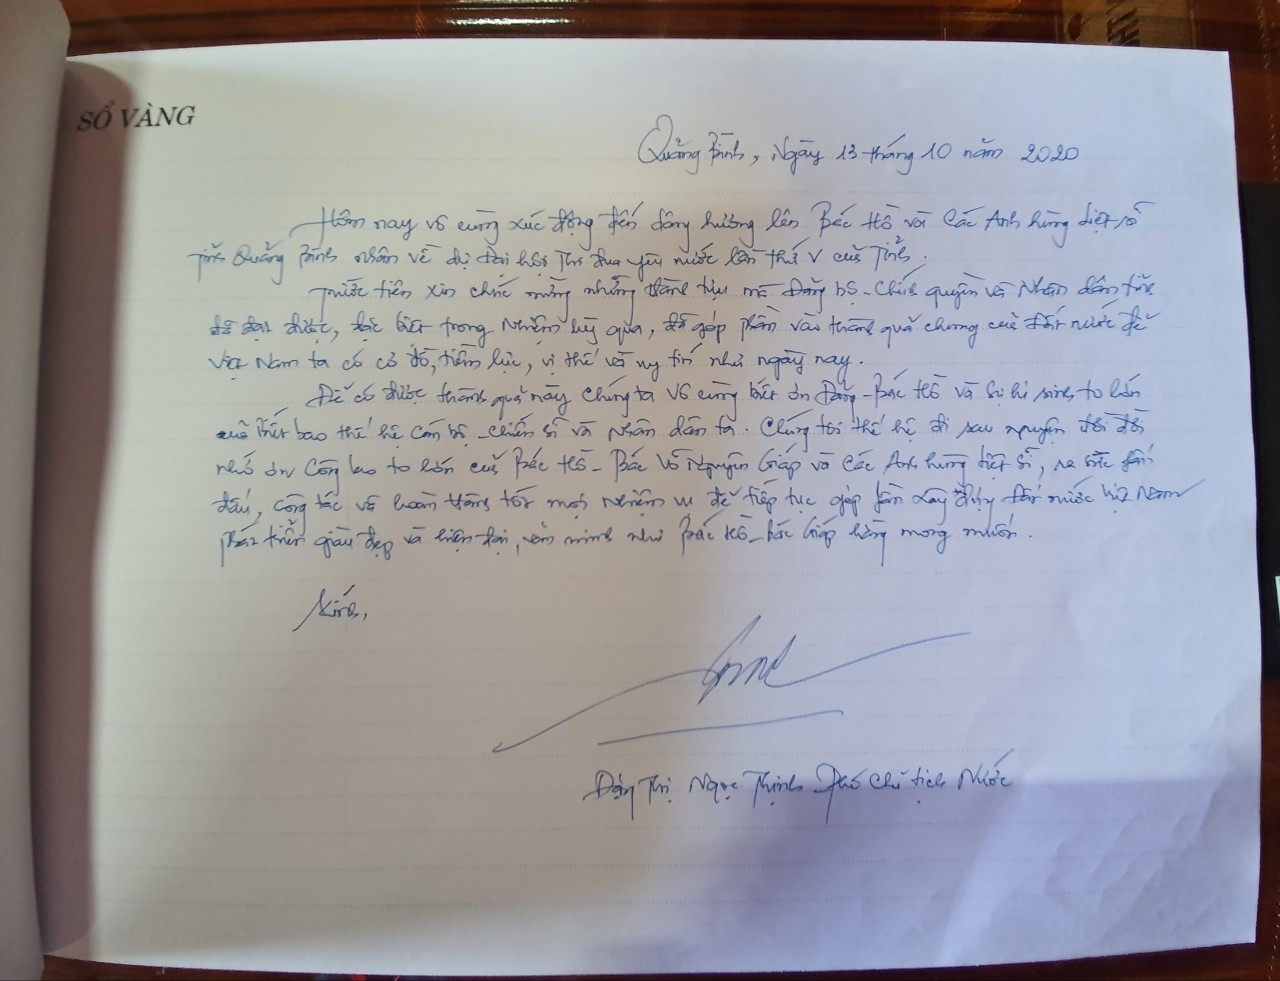 SỔ VÀNG
Quảng Bình, Ngày 13 tháng 10 năm 2020
Hôm nay vô cùng xúc động đến dâng hương lên Bác Hồ và các Anh hùng liệt sĩ
tỉnh Quảng Bình nhân về dự Đại hội Thi đua yêu nước lần thứ V của Tỉnh.
Trước tiên xin chúc mừng những thành tựu mà Đảng bộ - Chính quyền và Nhân dân tỉnh
đã đạt được, đặc biệt trong nhiệm kỳ qua, đã góp phần vào thành quả chung của đất nước để
Việt Nam ta có cơ đồ, tiềm lực, vị thế và uy tín như ngày nay.
Để có được thành quả này chúng ta vô cùng biết ơn Đảng - Bác Hồ và sự hi sinh to lớn
của biết bao thế hệ cán bộ - chiến sĩ và Nhân dân ta. Chúng tôi thế hệ đi sau nguyện đời đời
nhớ ơn công lao to lớn của Bác Hồ - Bác Võ Nguyên Giáp và các Anh hùng liệt sĩ, ra sức phấn
đấu, công tác và hoàn thành tốt mọi nhiệm vụ để tiếp tục góp phần xây dựng đất nước Việt Nam
phát triển giàu đẹp và hiện đại, văn minh như Bác Hồ - bác Giáp hằng mong muốn.
Kính,
Đặng Thị Ngọc Thịnh - Phó Chủ tịch Nước